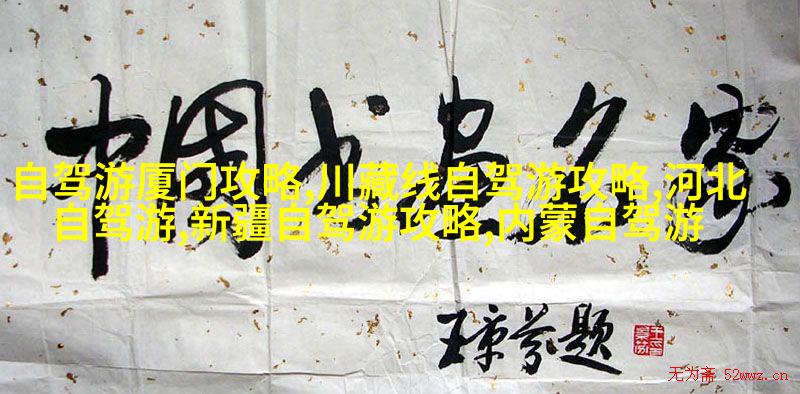 中国书画名家
自驾游厦门攻略,川藏线自驾游攻略,河北
自驾游,新疆自驾游攻略,内蒙自驾游
王京芬题
无为斋 52wwz.cn